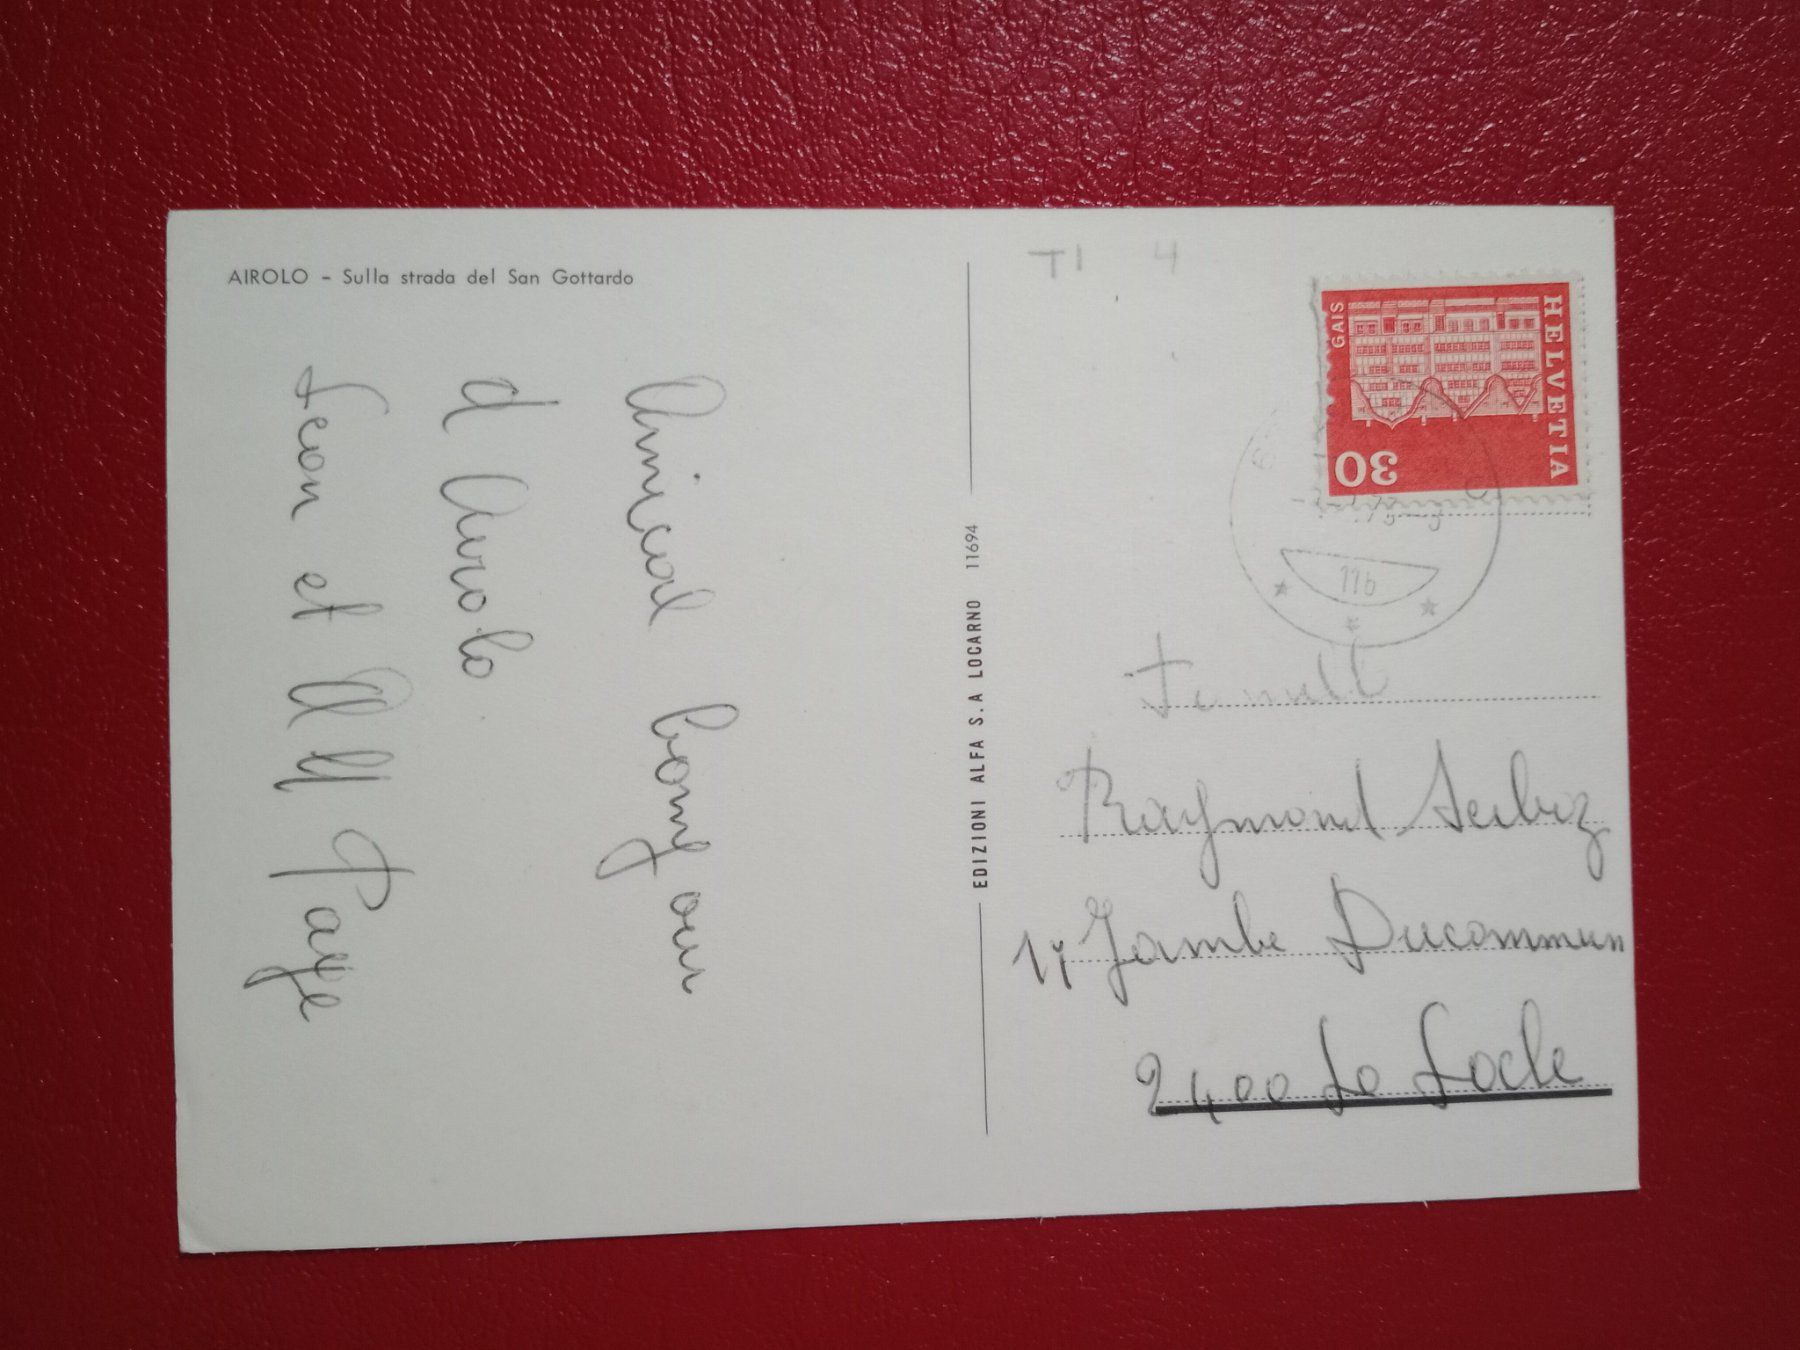 AIROLO – Sulla strada del San Gottardo
Amical bonjour
d Airolo
Leon et
EDIZIONI ALFA S.A LOCARNO 11694
TI 4
HELVETIA
GAIS
30
11b
Raymond
17 Jambe Ducommun
2400 Le Locle